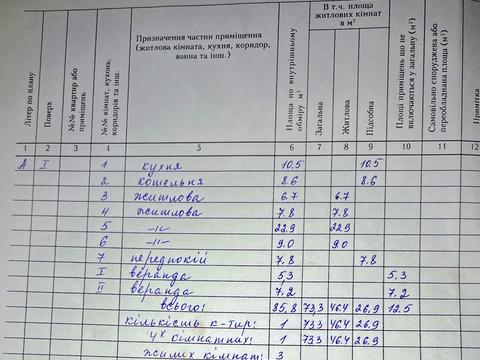 Літер по плану
Поверх
№№ квартир або приміщень
№№ кімнат, кухонь, коридорів та інш.
Призначення частин приміщення
(житлова кімната, кухня, коридор,
ванна та інш.)
Площа по внутрішньому обміру м²
В т.ч. площа
житлових кімнат
в м²
Загальна
Житлова
Підсобна
Площі приміщень що не включаються у загальну (м²)
Самовільно споруджена або переобладнана площа (м²)
Примітка
1 2 3 4 5 6 7 8 9 10 11 12
А I 1 кухня 10.5 10.5
2 котельня 8.6 8.6
3 житлова 6.7 6.7
4 житлова 7.8 7.8
5 -//- 22.9 22.9
6 -//- 9.0 9.0
7 передпокій 7.8 7.8
I веранда 5.3 5.3
II веранда 7.2 7.2
всього: 85,8 73,3 46.4 26,9 12.5
кількість к-тир: 1 73.3 46.4 26.9
4х кімнатних: 1 73.3 46.4 26.9
жилих кімнат: 3